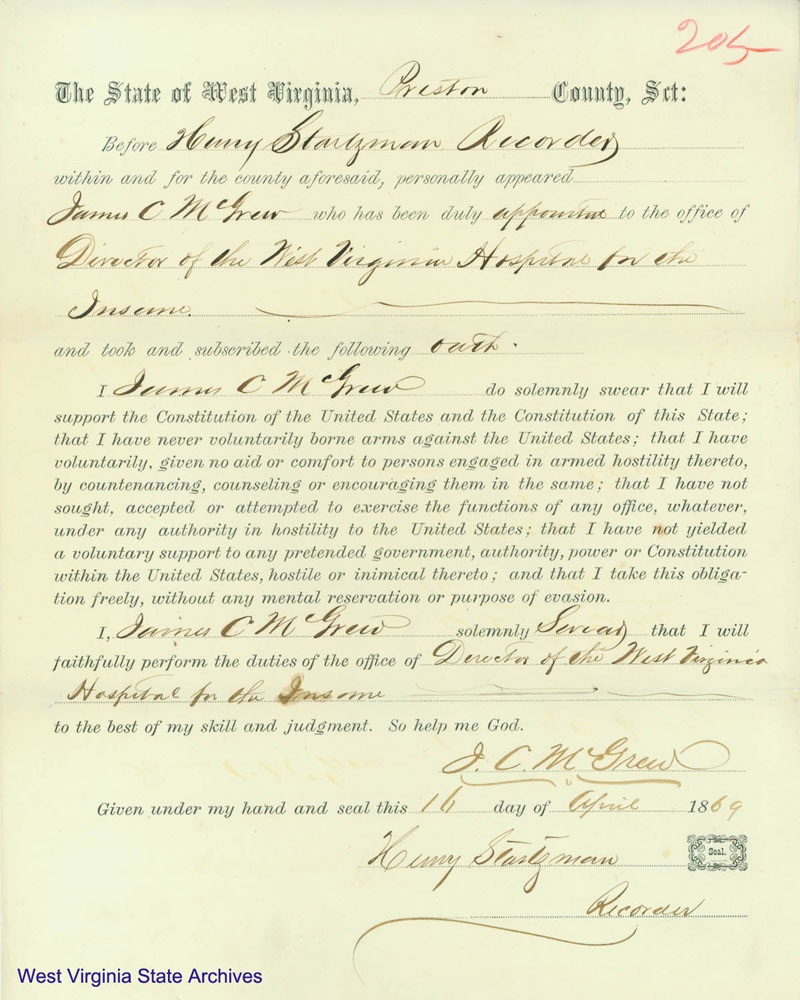 205
The State of West Virginia, Preston County, Sct:
Before Henry Startzman Recorder
within and for the county aforesaid, personally appeared
James C McGrew who has been duly appointed to the office of
Director of the West Virginia Hospital for the
Insane.
and took and subscribed the following oath.
I James C McGrew do solemnly swear that I will
support the Constitution of the United States and the Constitution of this State;
that I have never voluntarily borne arms against the United States; that I have
voluntarily, given no aid or comfort to persons engaged in armed hostility thereto,
by countenancing, counseling or encouraging them in the same; that I have not
sought, accepted or attempted to exercise the functions of any office, whatever,
under any authority in hostility to the United States; that I have not yielded
a voluntary support to any pretended government, authority, power or Constitution
within the United States, hostile or inimical thereto; and that I take this obliga-
tion freely, without any mental reservation or purpose of evasion.
I, James C McGrew solemnly Swear that I will
faithfully perform the duties of the office of Director of the West Virginia
Hospital for the Insane
to the best of my skill and judgment. So help me God.
J. C. McGrew
Given under my hand and seal this 16 day of April 1869
Henry Startzman Seal.
Recorder
West Virginia State Archives